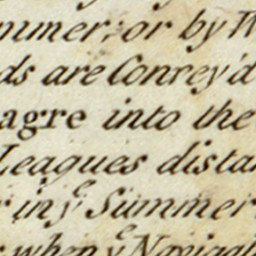 mmer; or by W
ds are Convey'd
agre into the
Leagues distan
r in yᵉ Summer
r when yᵉ Navigat